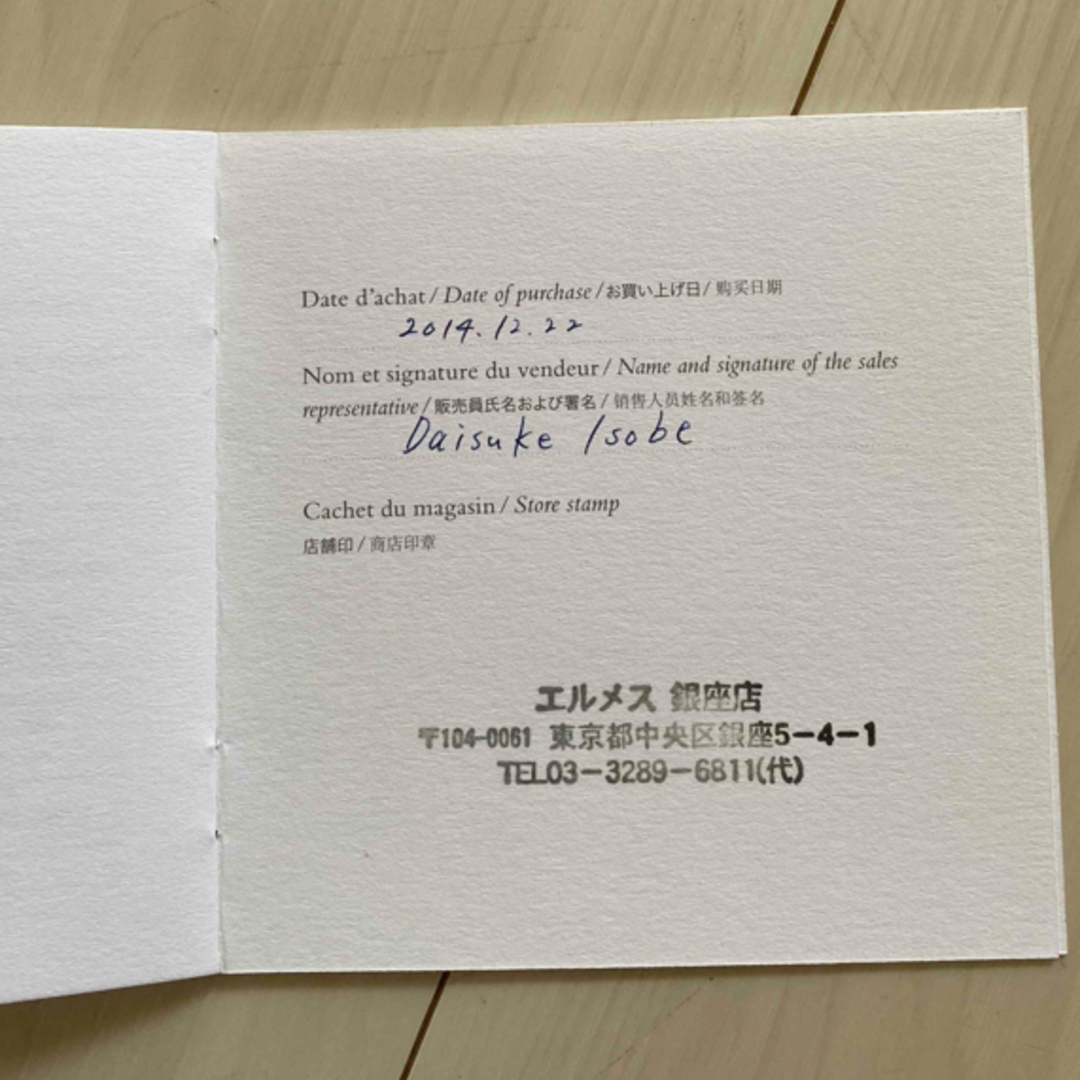 Date d'achat / Date of purchase / お買い上げ日 / 购买日期
2014.12.22
Nom et signature du vendeur / Name and signature of the sales
representative / 販売員氏名および署名 / 销售人员姓名和签名
Daisuke Isobe
Cachet du magasin / Store stamp
店舗印 / 商店印章
エルメス 銀座店
〒104-0061 東京都中央区銀座5-4-1
TEL03-3289-6811(代)